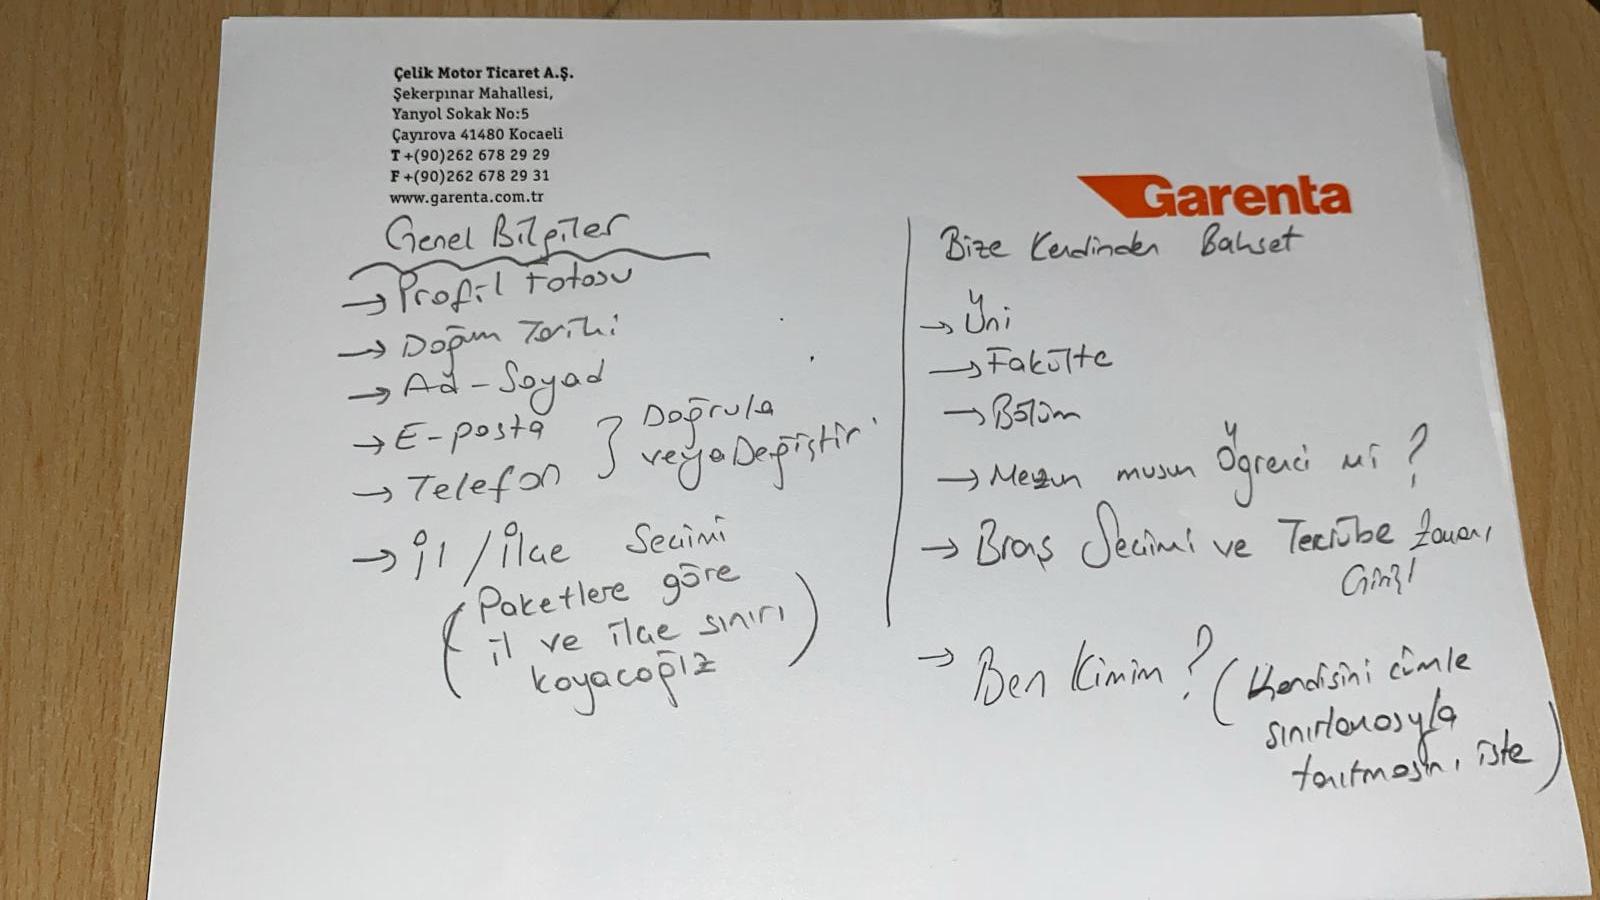 Çelik Motor Ticaret A.Ş.
Şekerpınar Mahallesi,
Yanyol Sokak No:5
Çayırova 41480 Kocaeli
T +(90)262 678 29 29
F +(90)262 678 29 31
www.garenta.com.tr
Garenta
Genel Bilgiler
→ Profil Fotosu
→ Doğum Tarihi
→ Ad - Soyad
→ E-posta } Doğrula
→ Telefon veya Değiştir
→ İl / İlçe Seçimi
(Paketlere göre
il ve ilçe sınırı
koyacağız)
Bize Kendinden Bahset
→ Üni
→ Fakülte
→ Bölüm
→ Mezun musun Öğrenci mi ?
→ Branş Seçimi ve Tecrübe Zamanı
Girişi
→ Ben Kimim ? (Kendisini cümle
sınırlamasıyla
tanıtmasını iste)